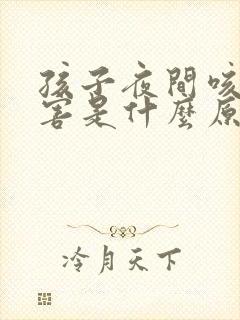 孩子夜間咳
害是什麼原
冷月天下